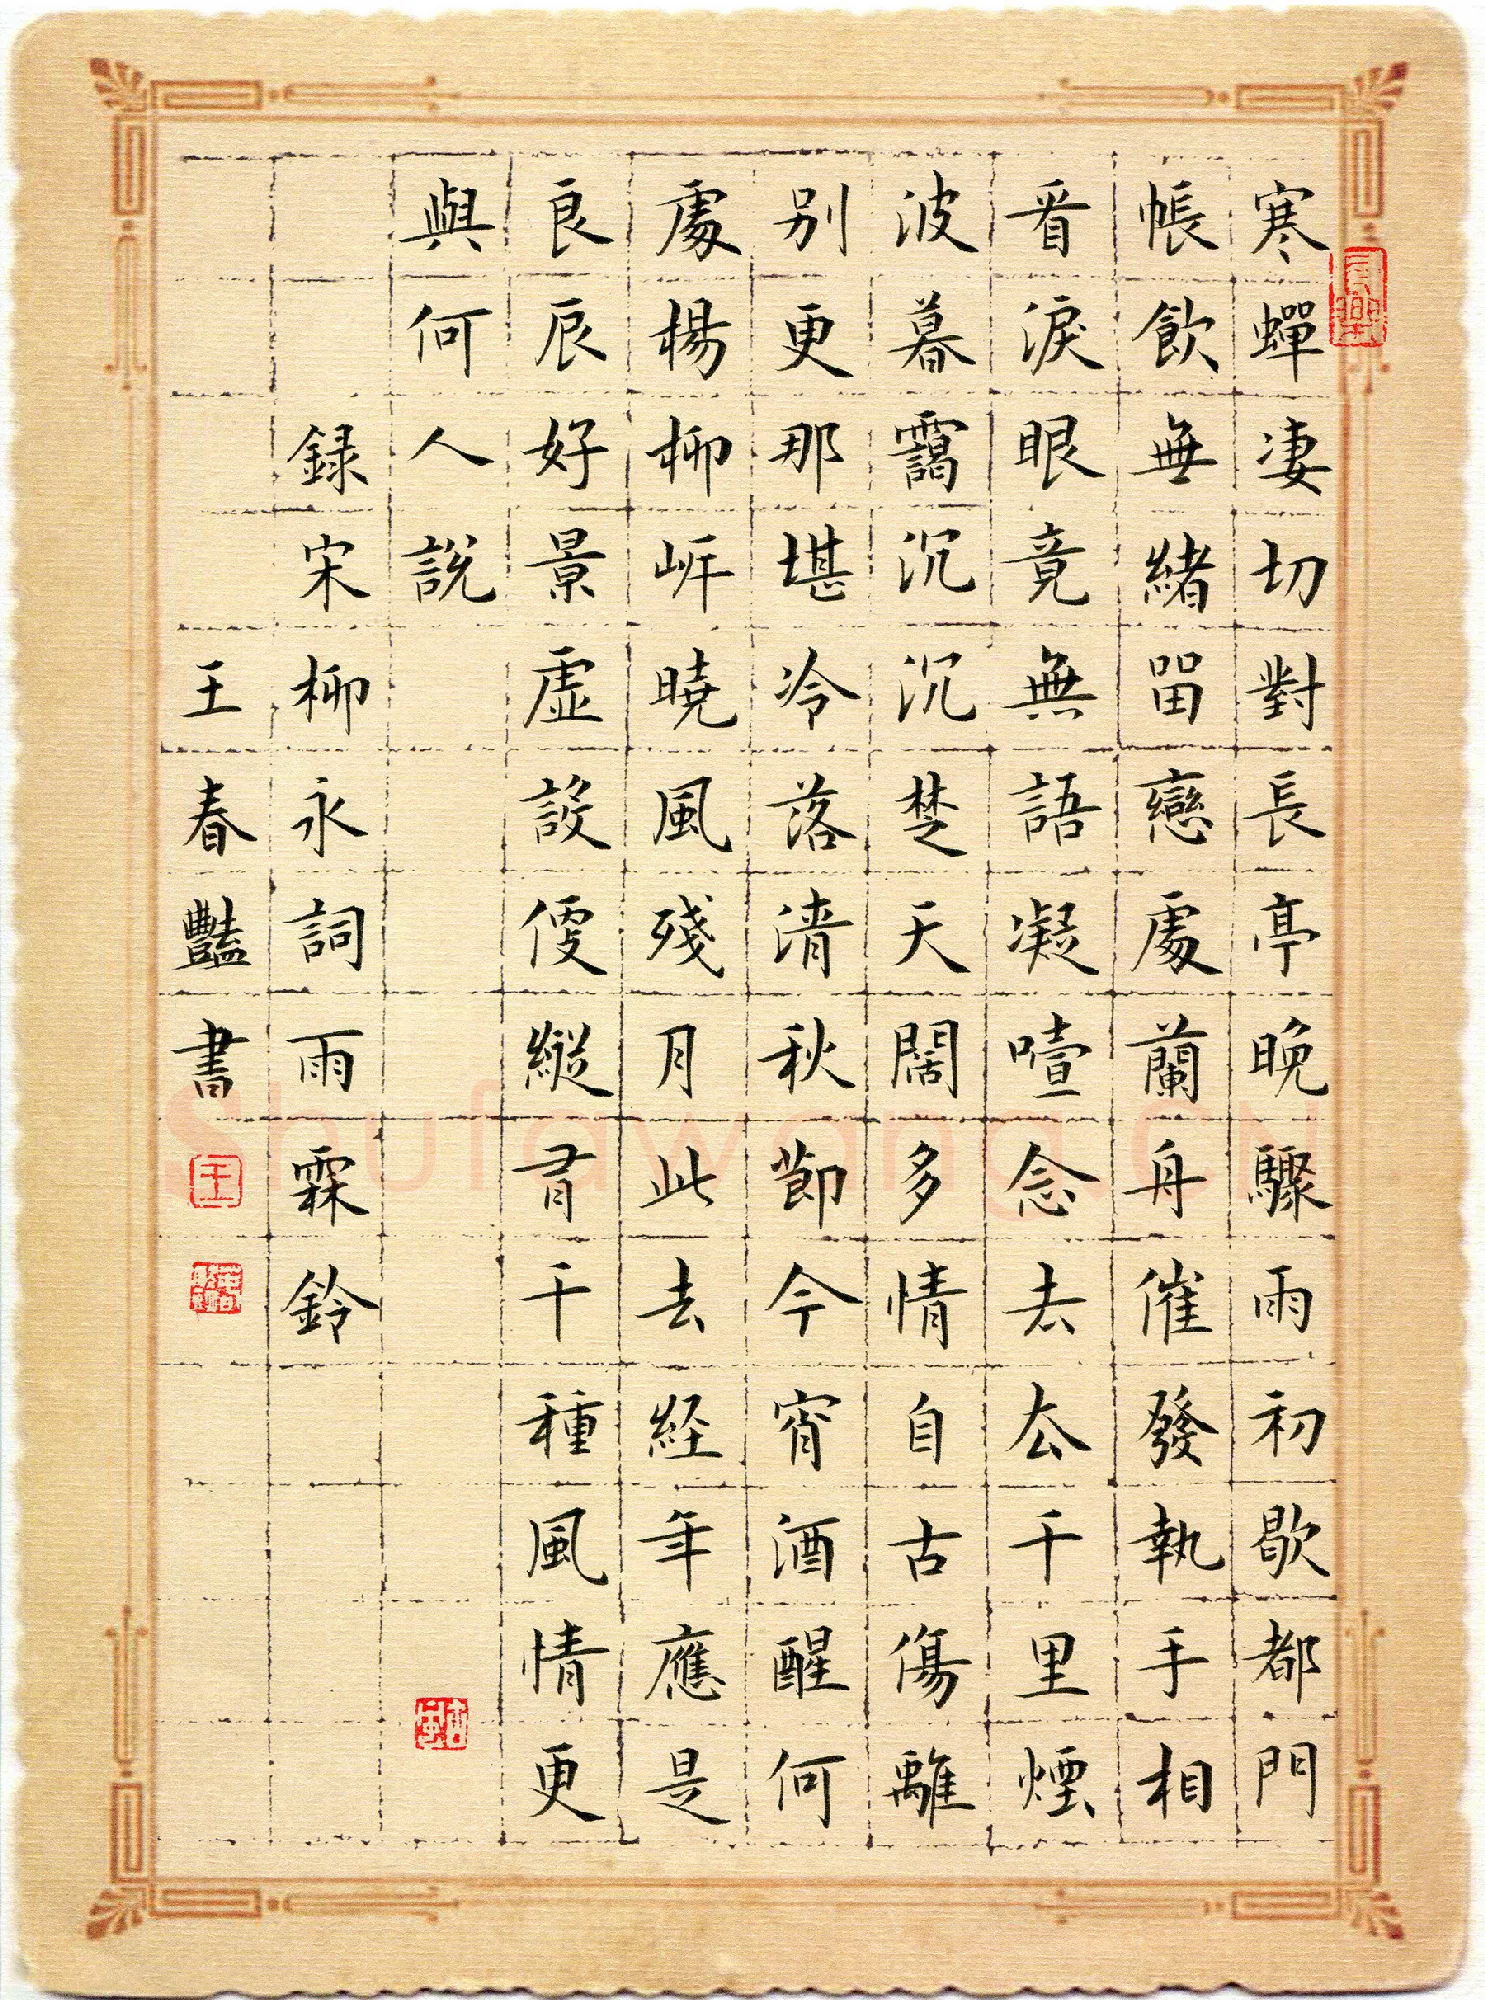 寒蟬凄切對長亭晚驟雨初歇都門
帳飲無緒留戀處蘭舟催發執手相
看淚眼竟無語凝噎念去去千里煙
波暮靄沉沉楚天闊多情自古傷離
別更那堪冷落清秋節今宵酒醒何
處楊柳岸曉風殘月此去経年應是
良辰好景虛設便縱有千種風情更
與何人說
録宋柳永詞雨霖鈴
王春豔書
王
Shufawang.CN